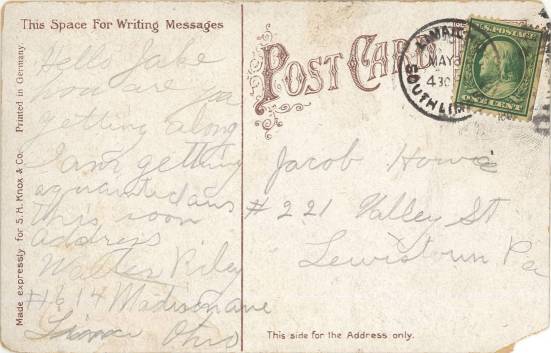 This Space For Writing Messages
Hello Jake
how are you
getting along
I am getting
aquainted
this soon
address
Walter Riley
#614 Madison ave
Lima Ohio
Made expressly for S. H. Knox & Co. Printed in Germany
POST CARD
MAY
430
SOUTH LIMA
U.S. POSTAGE
ONE CENT
Jacob Howe
#221 Valley St
Lewistown Pa
This side for the Address only.